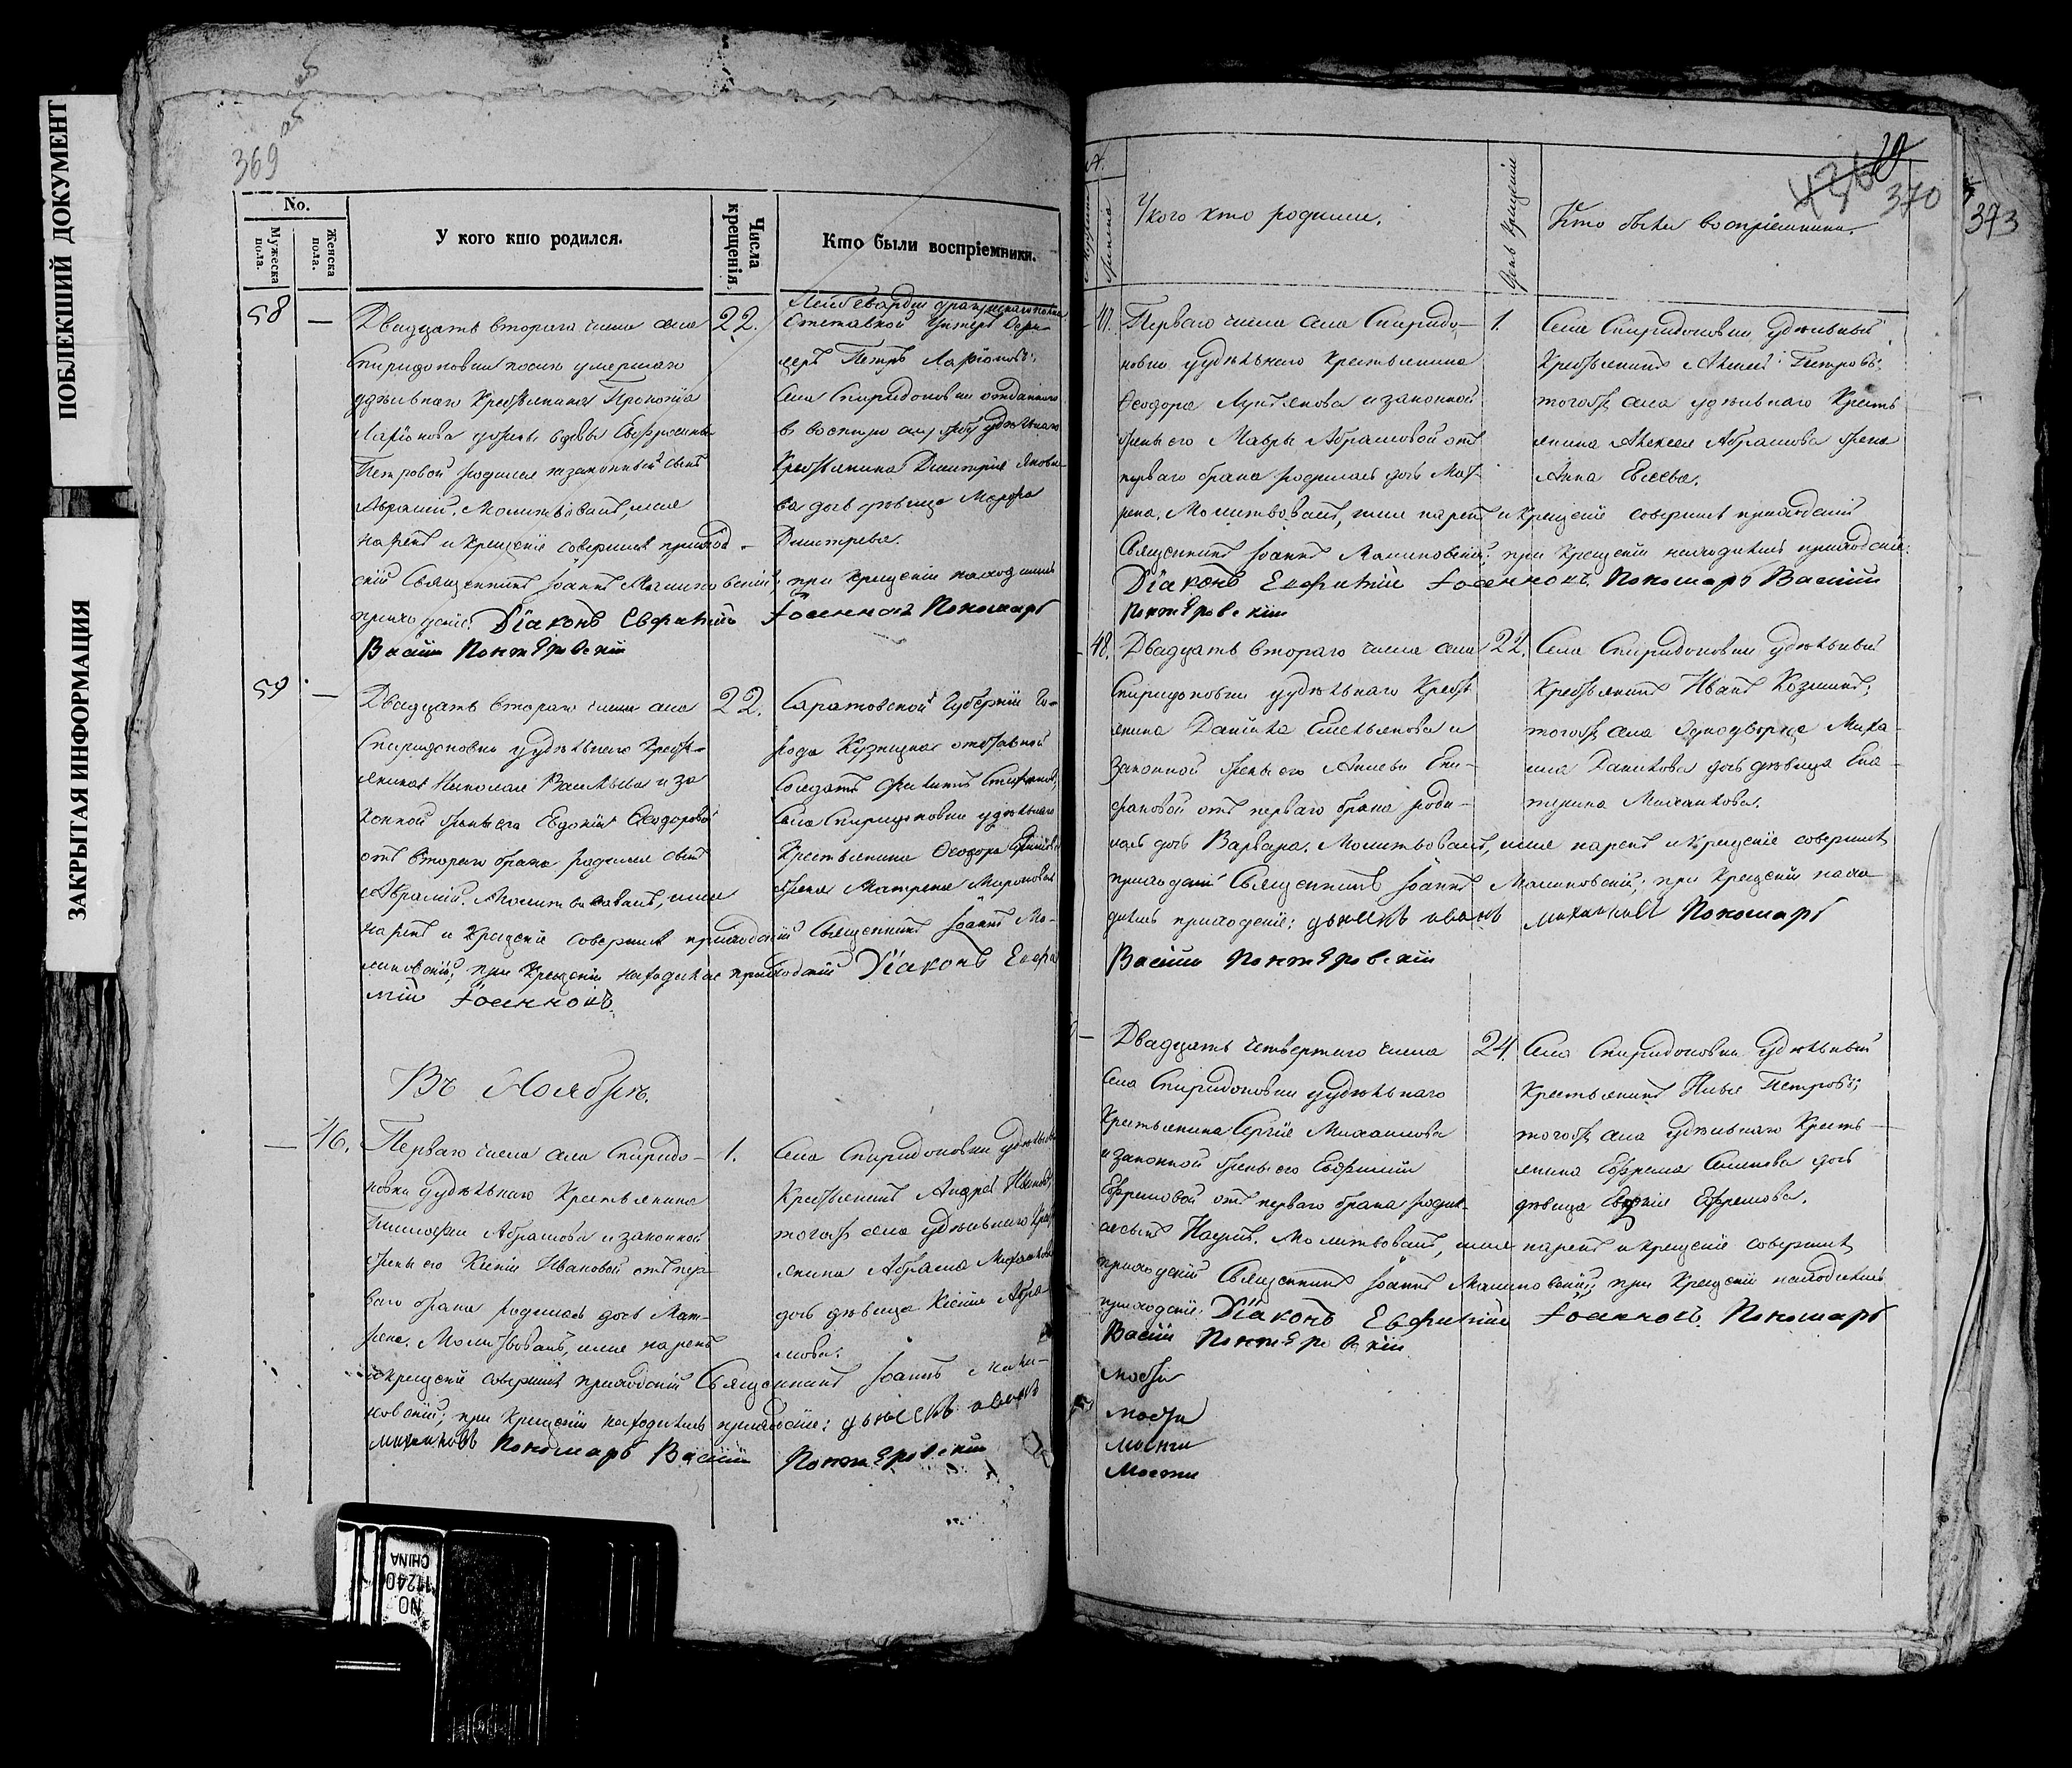 ПОБЛЕКШИЙ ДОКУМЕНТ
ЗАКРЫТАЯ ИНФОРМАЦИЯ
369
No.
Мужеска пола.
Женска пола.
У кого кто родился.
Числа крещенія.
Кто были воспріемники.
58 — Двадцать втораго числа села
Спиридоновки после умершаго
удѣльнаго Крестьянина Прокопія
Ларіонова жены вдовы Евфросиньи
Петровой родился незаконный сынъ
Аврамій. Молитвовалъ, имя
нарекъ и крещеніе совершилъ приход-
скій Священникъ Іоаннъ Малиновскій; при крещеніи находились
приходскіе: Діаконъ Евфимій Іоанновъ Пономарь
Василій
22.
Лейбгвардіи
Отставной Унтеръ Офи-
церъ Петръ Ларіоновъ;
Села Спиридоновки отданнаго
удѣльнаго
Крестьянина Дмитрія Яковле-
ва дочь дѣвица
Дмитрева.
59 — Двадцать втораго числа села
Спиридоновки удѣльнаго Кресть-
янина Николая Васильева и за
конной жены его Евдокіи Ѳеодоровой
отъ втораго брака родился сынъ
Аврамій. Молитвовалъ, имя
нарекъ и крещеніе совершилъ приходскій Священникъ Іоаннъ Ма-
линовскій; при крещеніи находился приходскій Діаконъ Евфи
мій Іоанновъ.
22.
Саратовской Губерніи Го-
рода Кузнецка отставной
Солдатъ Филиппъ
Села Спиридоновки удѣльнаго
Крестьянина Ѳеодора
жена Матрена Миронова
Въ Ноябрѣ.
— 46. Перваго числа села Спиридо-
новки удѣльнаго Крестьянина
Тимофея Абрамова и законной
жены его Ксеніи Ивановой отъ пер-
ваго брака родилась дочь Мат-
рена. Молитвовалъ, имя нарекъ
и крещеніе совершилъ приходскій Священникъ Іоаннъ Мали-
новскій; при крещеніи находились приходскіе: дьячекъ иванъ
михайловъ Пономарь Василій
1.
Села Спиридоновки удѣльный
Крестьянинъ Андрей Ивановъ,
тогожъ села удѣльнаго Крест
янина Абрама
дочь дѣвица Ксенія Абра
мова.
370
373
У кого кто родился.
День крещенія
Кто были воспріемники.
47. Перваго числа села Спиридо-
новки удѣльнаго Крестьянина
Ѳеодора Лукьянова и законной
жены его Мавры Абрамовой отъ
перваго брака родилась дочь Мат-
рена. Молитвовалъ, имя нарекъ и крещеніе совершилъ приходскій
Священникъ Іоаннъ Малиновскій; при крещеніи находились приходскіе:
Діаконъ Евфимій Іоанновъ. Пономарь Василій
1.
Села Спиридоновки Удѣльный
Крестьянинъ Алексѣй Петровъ;
тогожъ села удѣльнаго Кресть
янина Алексея Абрамова жена
Анна Евсеева.
48. Двадцать втораго числа села
Спиридоновки удѣльнаго Кресть
янина Данила Емельянова и
законной жены его Епи-
фановой отъ перваго брака роди-
лась дочь Варвара. Молитвовалъ, имя нарекъ и крещеніе совершилъ
приходскій Священникъ Іоаннъ Малиновскій; при крещеніи нахо
дились приходскіе: дьячекъ иванъ михайловъ Пономарь
Василій
22.
Села Спиридоновки Удѣльный
Крестьянинъ Иванъ Козминъ;
тогожъ села Однодворца Миха-
ила Данилова дочь дѣвица Ека-
терина Михайлова.
— Двадцать четвертаго числа
Села Спиридоновки удѣльнаго
Крестьянина Сергія Михайлова
и законной жены его Евфиміи
Ефремовой отъ перваго брака родил-
ся сынъ Наумъ. Молитвовалъ, имя нарекъ и крещеніе совершилъ
приходскій Священникъ Іоаннъ Малиновскій; при крещеніи находились
приходскіе: Діаконъ Евфимій Іоанновъ. Пономарь
Василій
24.
Села Спиридоновки Удѣльный
Крестьянинъ Илья Петровъ;
тогожъ села удѣльнаго Кресть-
янина Ефрема дочь
дѣвица Ефремова.
NO.
11240
CHINA